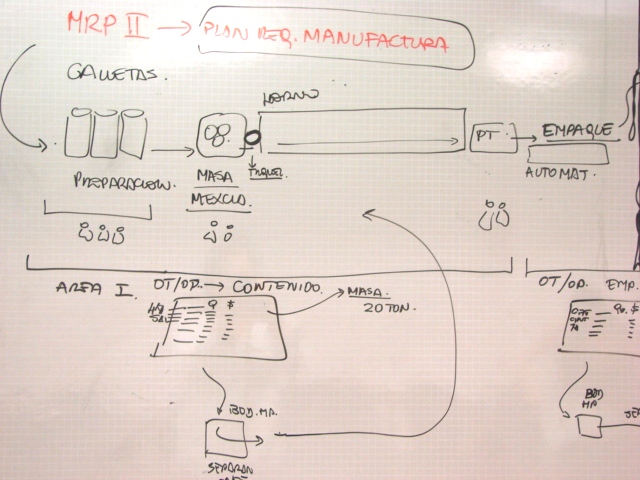 MRP II → PLAN REQ. MANUFACTURA
GALLETAS.
HORNO
PT.
EMPAQUE
AUTOMAT.
PREPARACION.
MASA
MEZCLA
TROQUEL.
AREA I
OT/OP. → CONTENIDO.
Q $
MASA.
20 TON.
OT/OP. EMP.
$
BOD. MP.
SEPARAN
BOD
MP